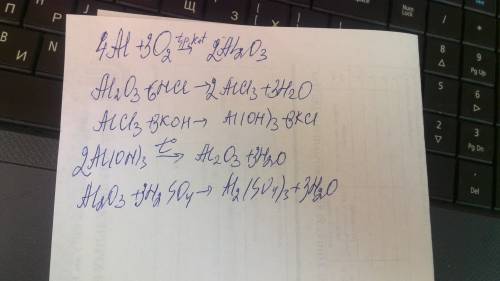 4Al + 3O2 t,p,kat → 2Al2O3
Al2O3 + 6HCl → 2AlCl3 + 3H2O
AlCl3 + 3KOH → Al(OH)3 + 3KCl
2Al(OH)3 t° → Al2O3 + 3H2O
Al2O3 + 3H2SO4 → Al2(SO4)3 + 3H2O